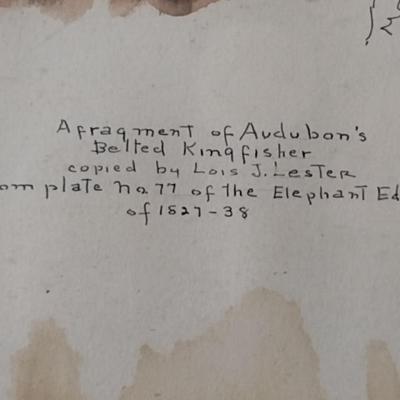 A fragment of Audubon's
Belted Kingfisher
copied by Lois J. Lester
om plate no. 77 of the Elephant Ed
of 1827-38